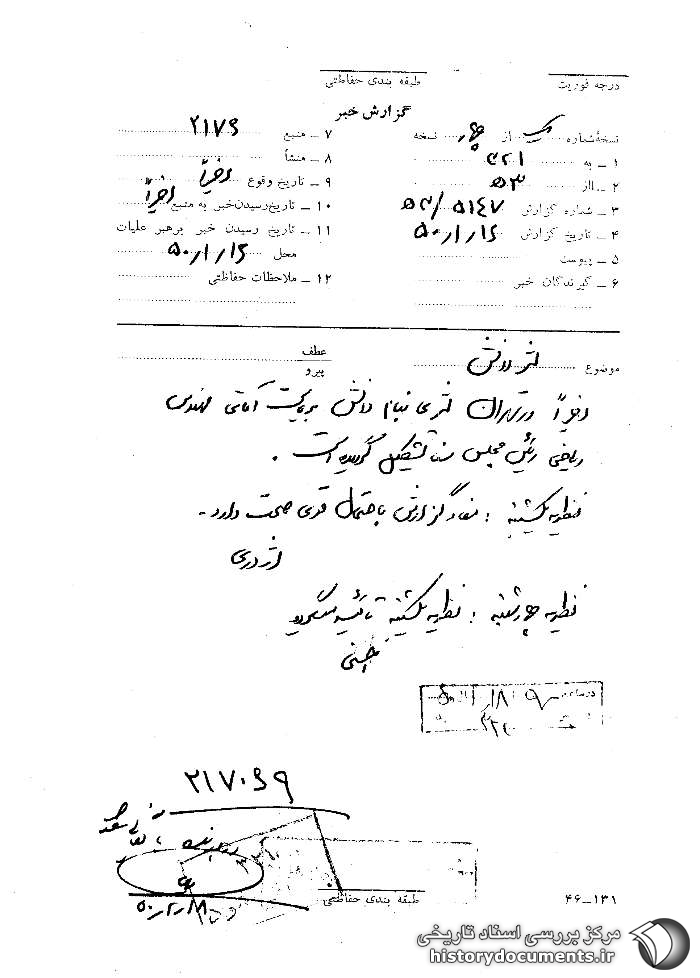 درجه فوریت
طبقه بندی حفاظتی
گزارش خبر
نسخهٔ شماره یک از چهار نسخه
۱ ـ به ۳۲۱
۲ ـ از ۵۳
۳ ـ شماره گزارش ۵۳/۵۱۴۷
۴ ـ تاریخ گزارش ۵۰/۱/۱۶
۵ ـ پیوست
۶ ـ گیرندگان خبر
۷ ـ منبع ۲۱۷۶
۸ ـ منشأ
۹ ـ تاریخ وقوع اخیراً
۱۰ ـ تاریخ رسیدن خبر به منبع اخیراً
۱۱ ـ تاریخ رسیدن خبر برهبر عملیات
محل ۵۰/۱/۱۶
۱۲ ـ ملاحظات حفاظتی
موضوع لژ دانش
عطف
پیرو
اخیراً در تهران لژی بنام دانش بریاست آقای مهندس
ریاضی رئیس مجلس تشکیل گردیده است .
نظریه یکشنبه : مفاد گزارش باحتمال قوی صحت دارد .
اژدری
نظریه چهارشنبه : نظریه یکشنبه تأیید میگردد
۲۱۷۰۶۹
۵۰/۲/۱۸
طبقه بندی حفاظتی
۴۶ـ۱۳۱
مرکز بررسی اسناد تاریخی
historydocuments.ir